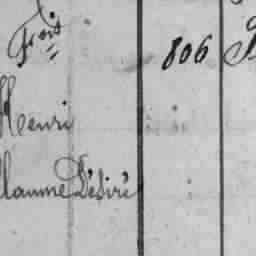 Frois 806
Henri
llaume Désiré